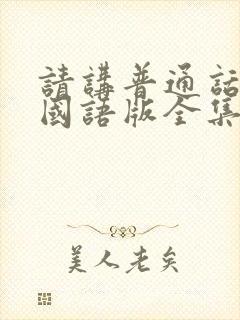 請講普通話
國語版全集
美人老矣